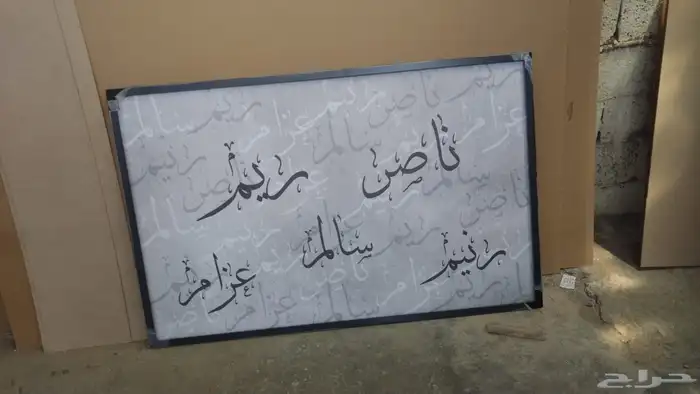 ناصر ريم
رنيم سالم عزام
حراج